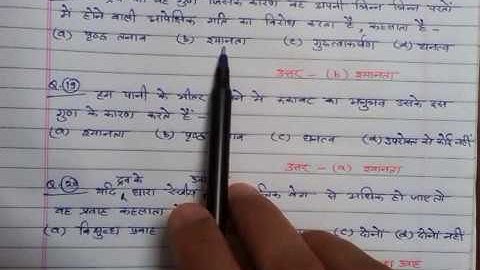 गुण जिसके कारण वह अपनी भिन्न भिन्न परतों
में होने वाली आपेक्षिक गति का विरोध करता है, कहलाता है -
(a) पृष्ठ तनाव (b) श्यानता (c) गुरुत्वाकर्षण (d) घनत्व
उत्तर - (b) श्यानता
Q.(19)
हम पानी के भीतर में रुकावट का अनुभव उसके इस
गुण के कारण करते हैं:-
(a) श्यानता (b) पृष्ठ (c) घनत्व (d) उपरोक्त में कोई नहीं
उत्तर - (a) श्यानता
द्रव के
यदि धारा वेग से अधिक हो जाए तो
वह प्रवाह कहलाता
(a) विक्षुब्ध प्रवाह (c) दोनों (d) दोनों नहीं
प्रवाह